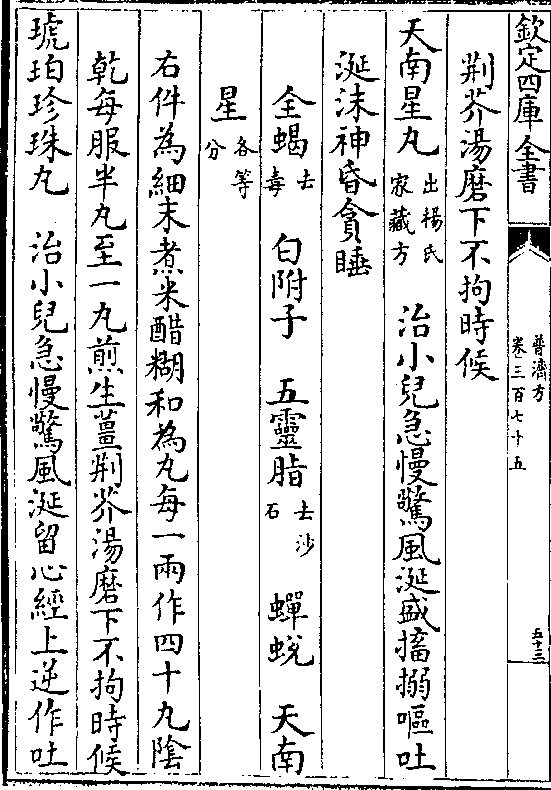 欽定四庫全書
普濟方
卷三百七十五
五十三
荆芥湯磨下不拘時候
天南星丸出楊氏家藏方 治小兒急慢驚風涎盛搐搦嘔吐
涎沫神昏貪睡
全蝎去毒 白附子 五靈脂去沙石 蟬蛻 天南
星各等分
右件為細末煮米醋糊和為丸每一兩作四十九陰
乾每服半丸至一丸煎生薑荆芥湯磨下不拘時候
琥珀珍珠丸 治小兒急慢驚風涎留心經上逆作吐